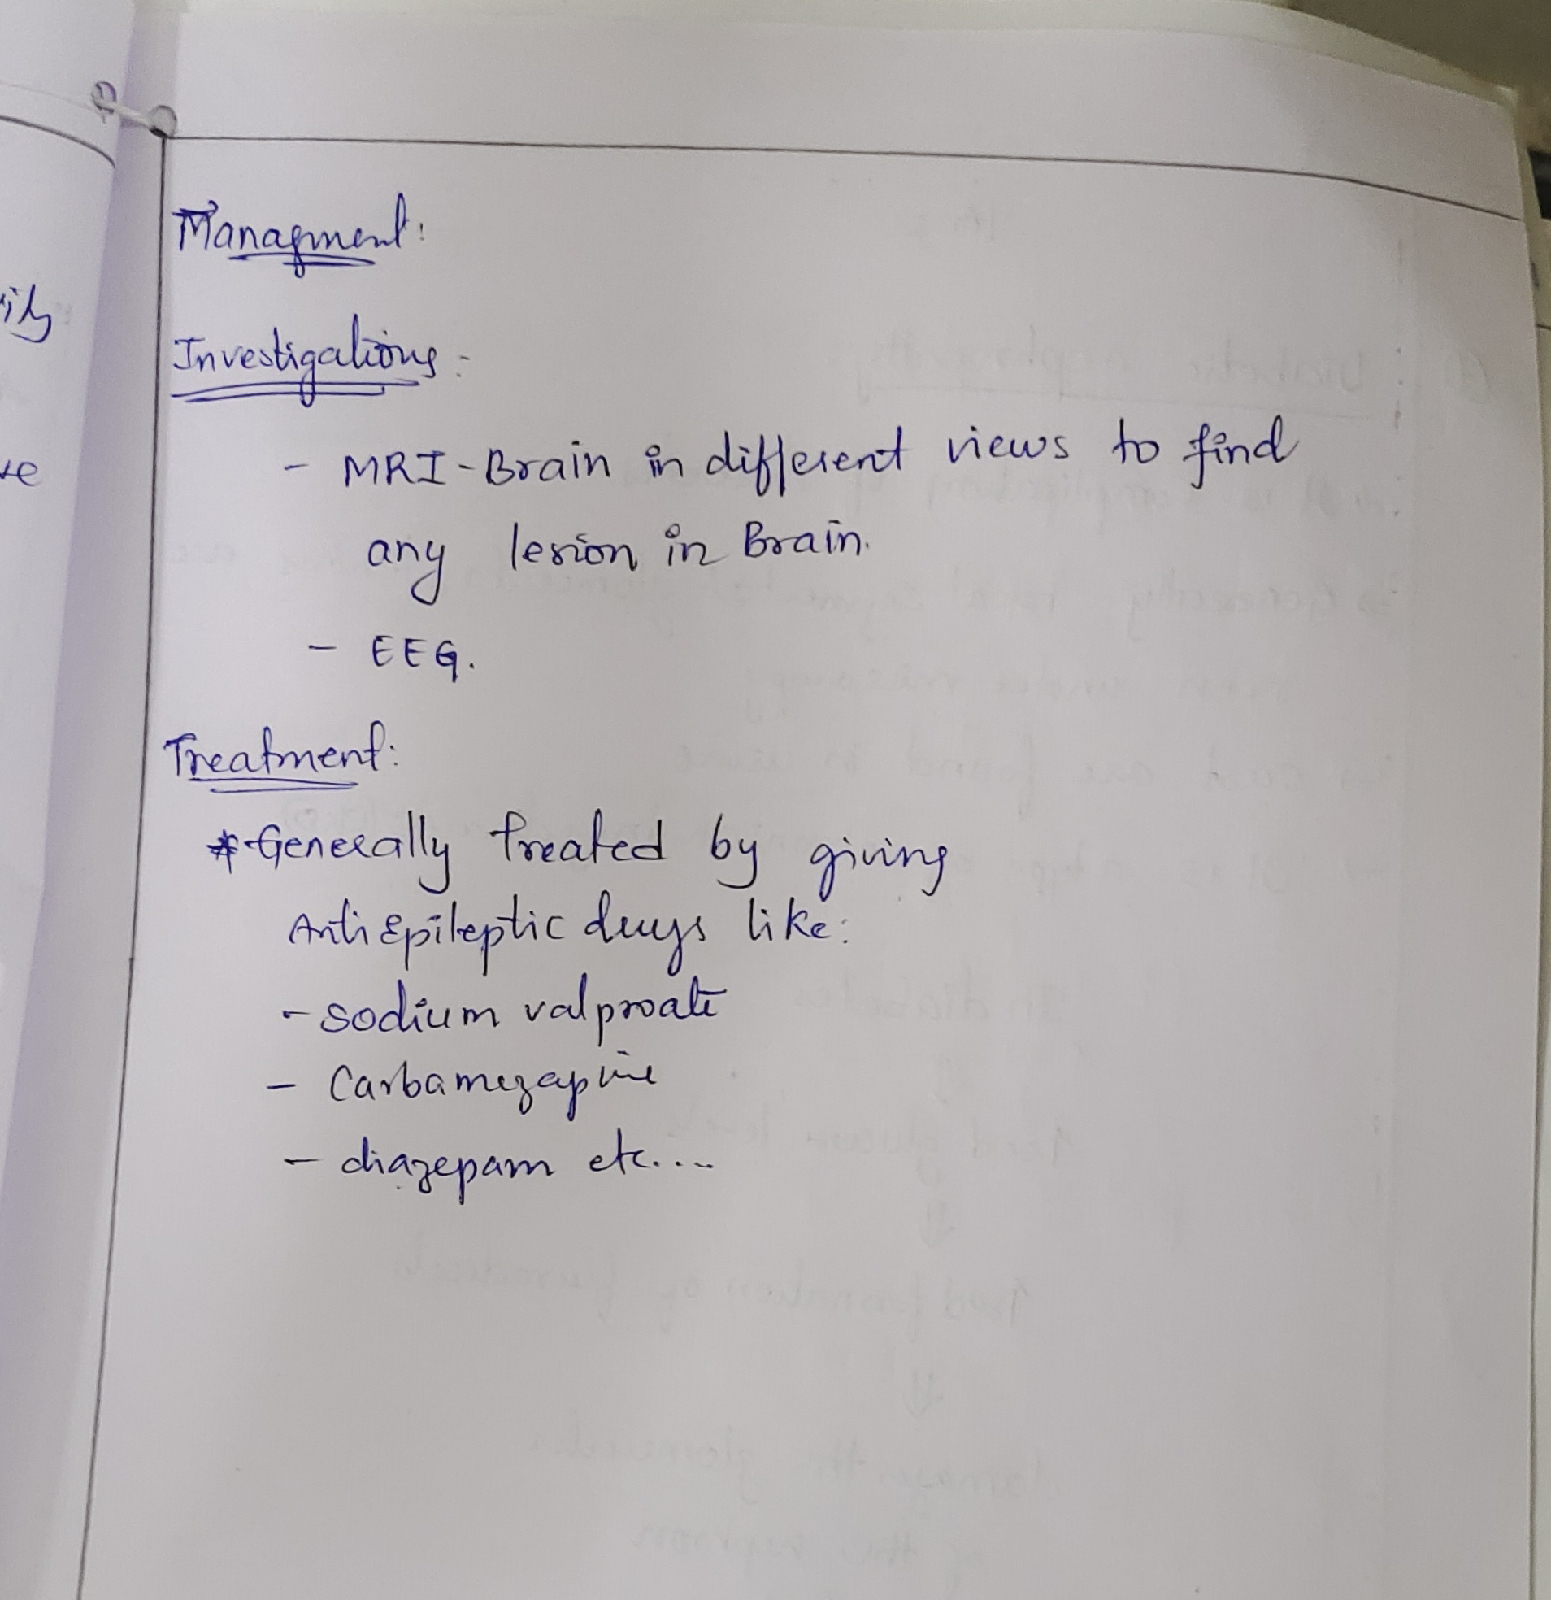 Managment:
Investigations:-
- MRI-Brain in different views to find
any lesion in Brain.
- EEG.
Treatment:
* Generally treated by giving
Anti Epileptic drugs like:
- sodium valproate
- Carbamezapine
- diazepam etc....